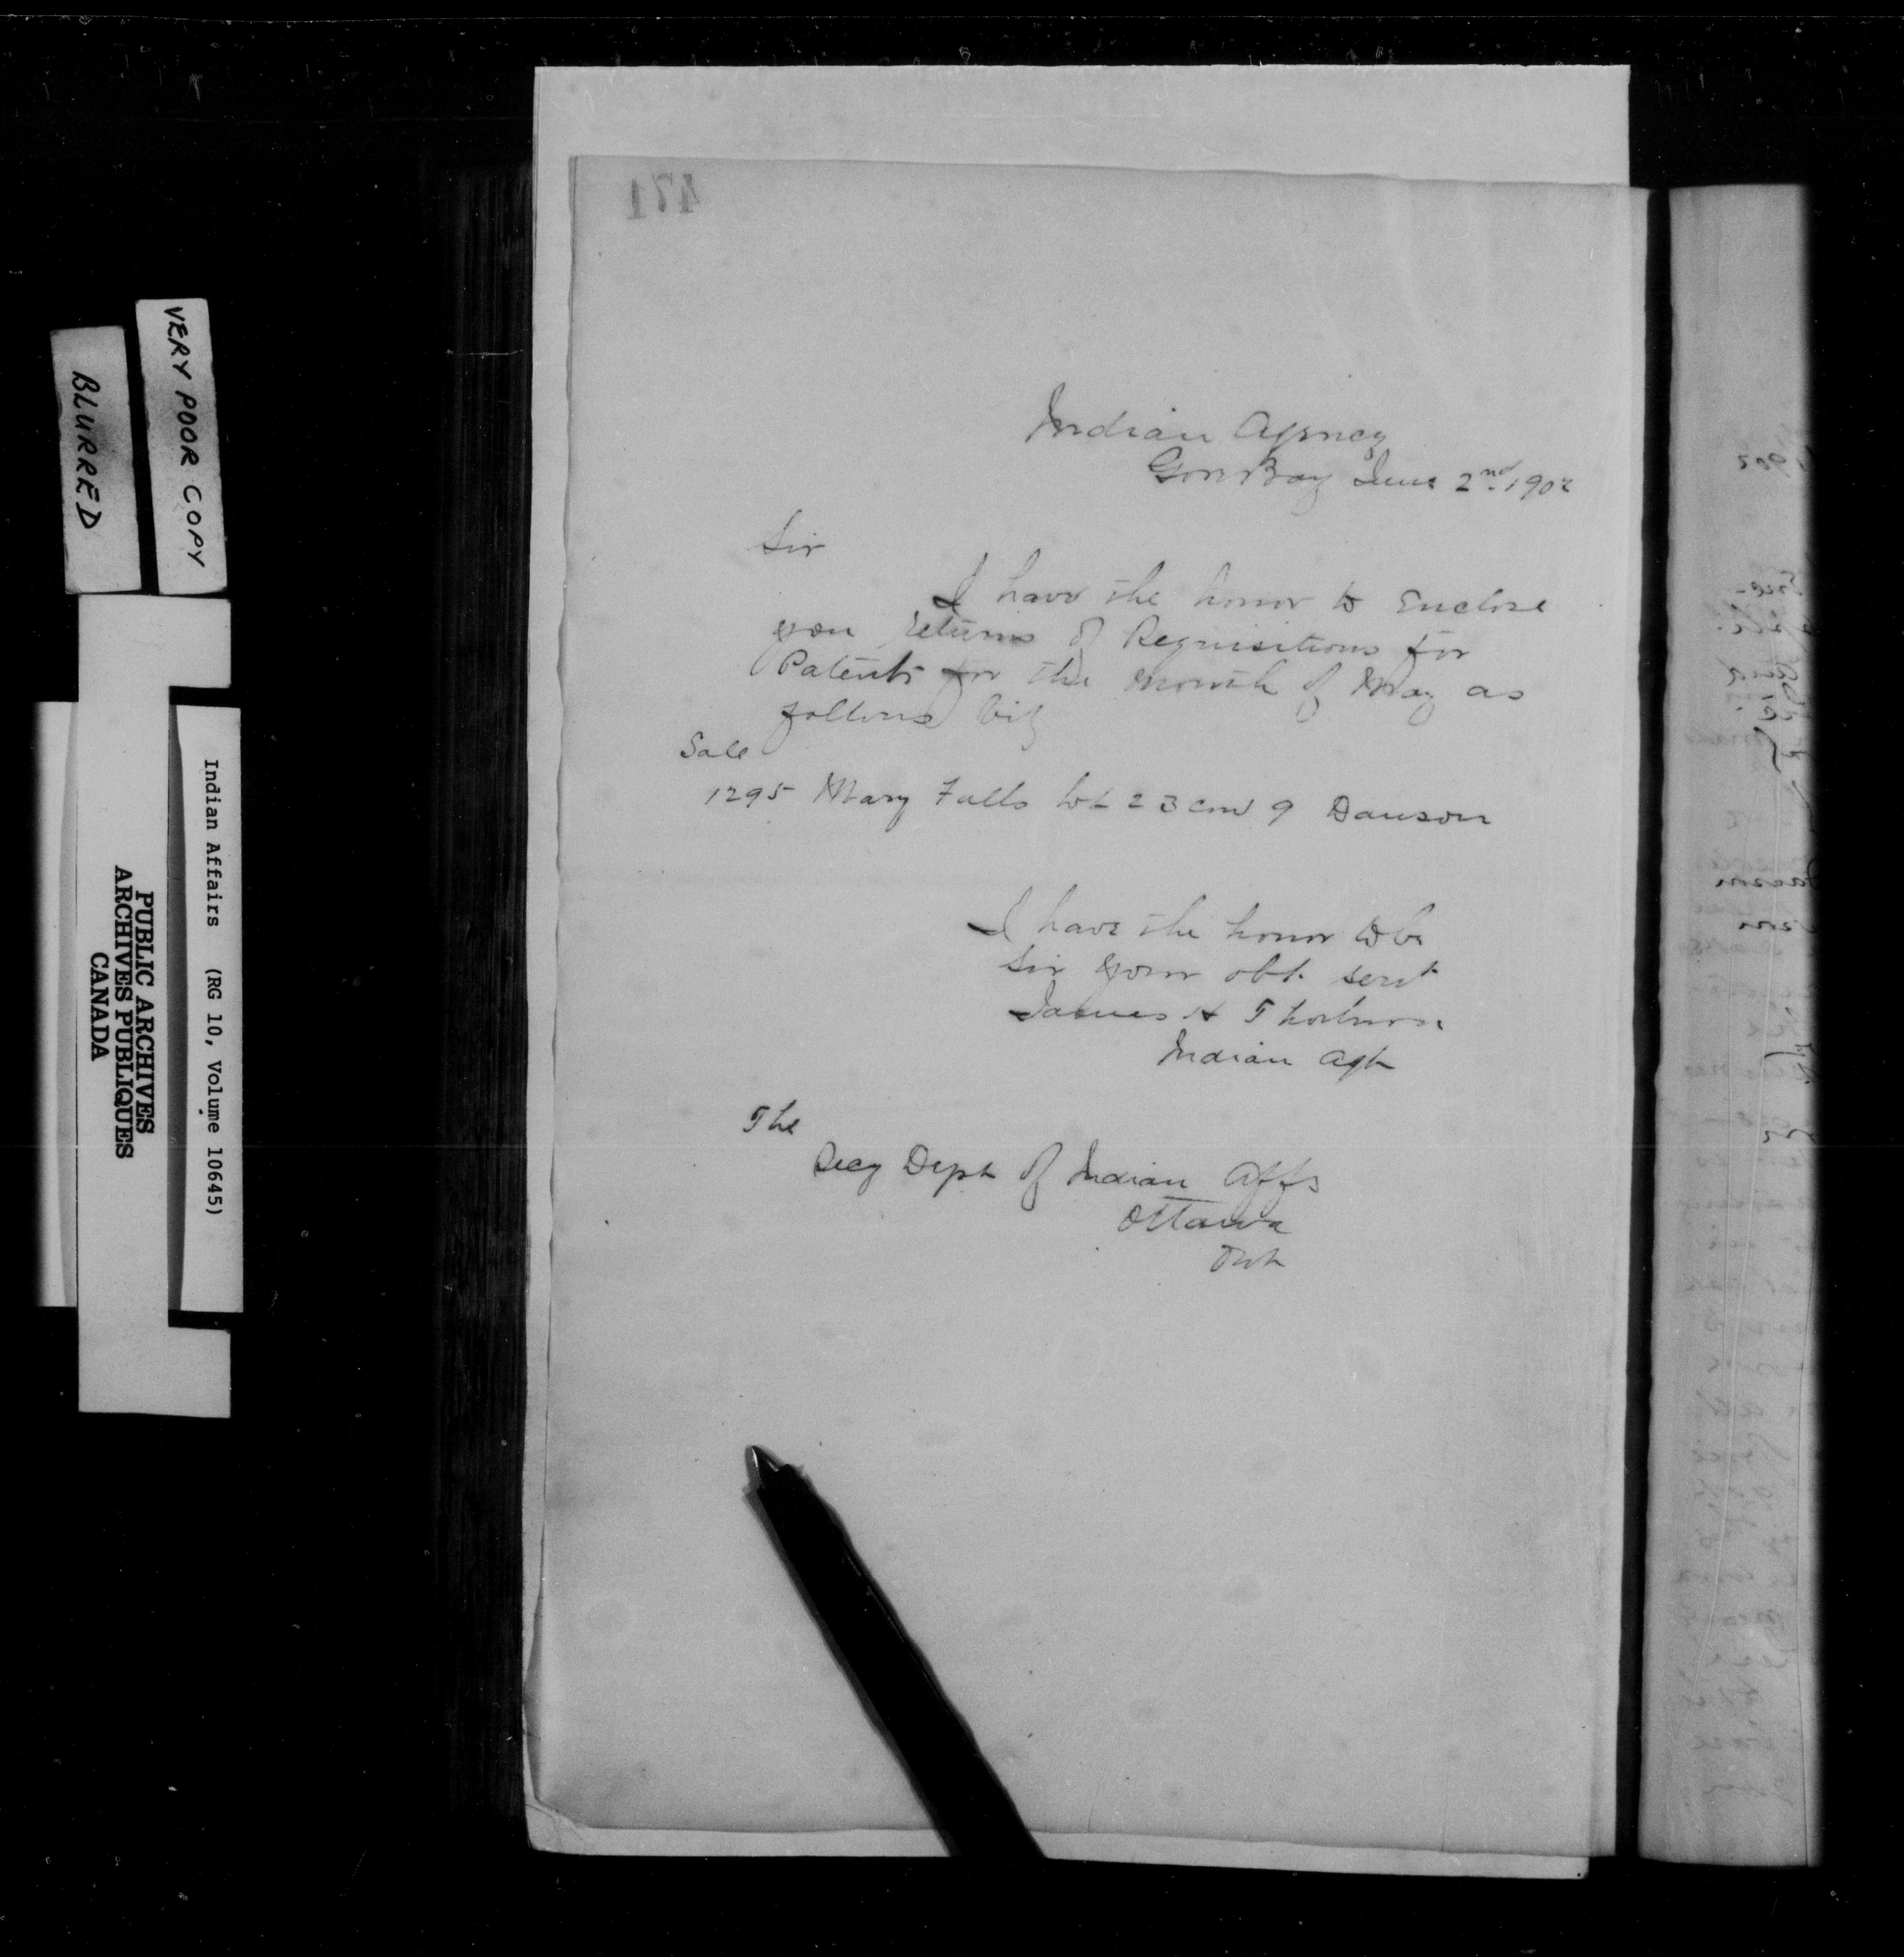 471
Indian Agency
Gore Bay June 2nd 1902
Sir
I have the honor to Enclose
you returns of Requisitions for
Patents for the month of May as
follows viz
Sale
1295 Mary Falls lot 23 con 9 Dawson
I have the honor to be
Sir your obt. servt
James H Thorburn
Indian Agt
The
Secy Dept of Indian Affs
Ottawa
Ont
VERY POOR COPY
BLURRED
Indian Affairs (RG 10, Volume 10645)
PUBLIC ARCHIVES
ARCHIVES PUBLIQUES
CANADA